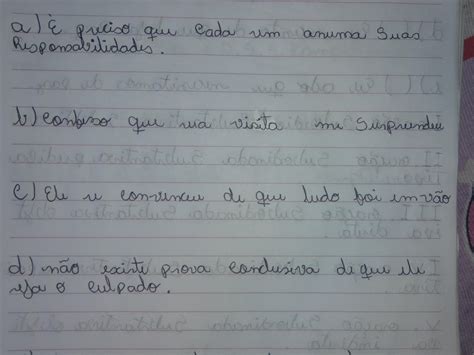 a) É preciso que cada um assuma suas
Responsabilidades.
b) confesso que sua visita me surpreendeu
c) Ele se convenceu de que tudo foi em vão
d) não existe prova conclusiva de que ele
seja o culpado.